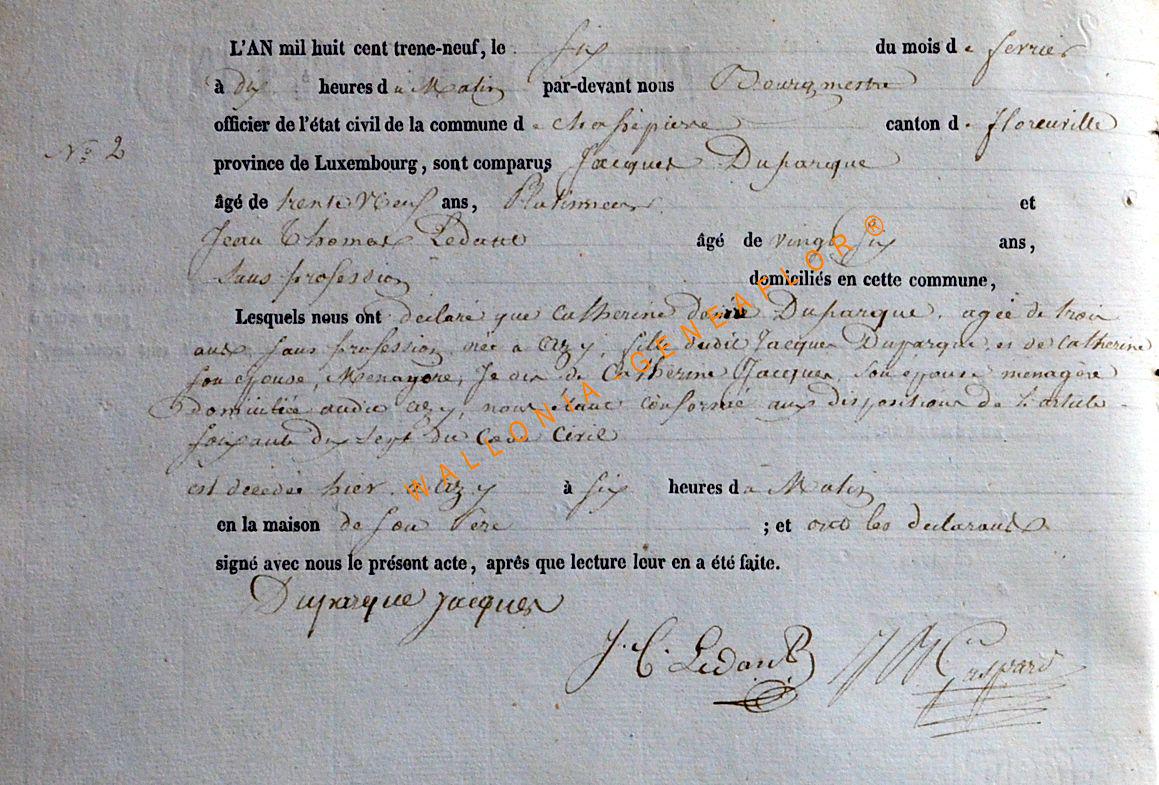 L'AN mil huit cent trene-neuf, le six du mois de fevrier
à dix heures du Matin par-devant nous Bourgmestre
officier de l'état civil de la commune de Chassepierre canton de Florenville
N° 2
province de Luxembourg, sont comparus Jacques Duparque
âgé de trente Neuf ans, et
Jean Thomas Ledant âgé de vingt Six ans,
sans profession domiciliés en cette commune,
Lesquels nous ont déclaré que Catherine Duparque, agée de trois
ans sans profession née a Azy, fille dudit Jacques Duparque, et de Catherine
son épouse, Menagère, Je dis de Catherine Jacques, son épouse menagère
domiciliée audit Azy, nous étant conformé aux dispositions de l'article
soixante dix sept du Code Civil
est décédée hier, a Azy à six heures du Matin
en la maison de son Père ; et ont les declarants
signé avec nous le présent acte, après que lecture leur en a été faite.
Duparque Jacques
J. T. Ledant Gaspard
WALLONIA-GENEAFLOR ®